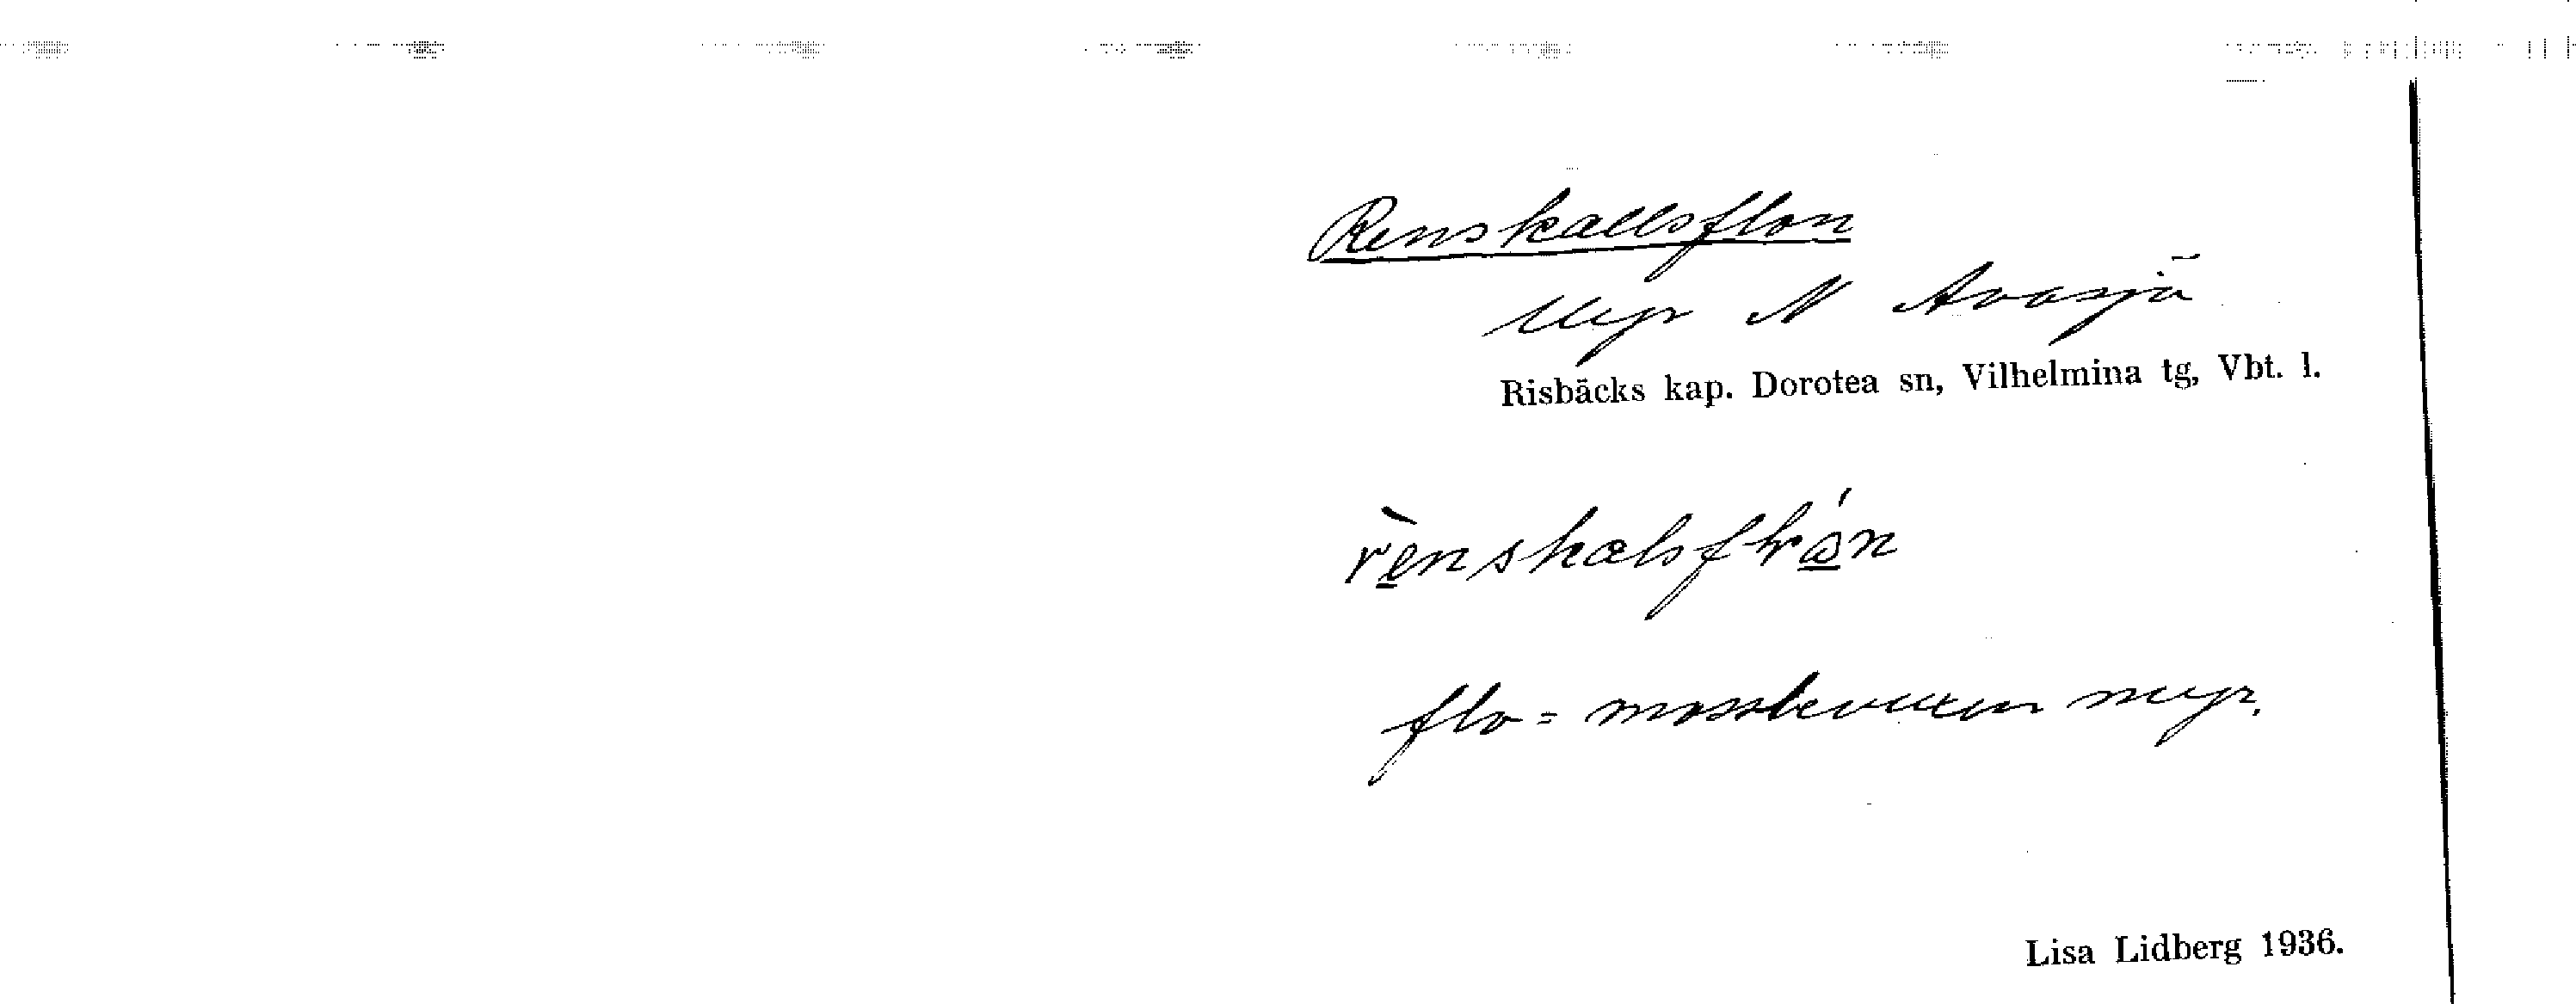 Renskallsflon
Myr N Avasjö
Risbäcks kap. Dorotea sn, Vilhelmina tg, Vbt. l.
flo = mossbevuxen myr.
Lisa Lidberg 1936.